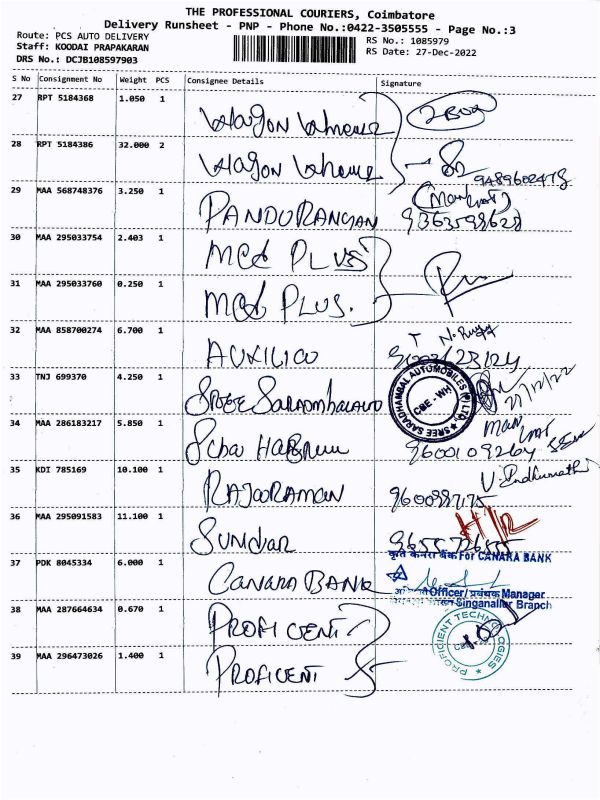 THE PROFESSIONAL COURIERS, Coimbatore
Delivery Runsheet - PNP - Phone No.:0422-3505555 - Page No.:3
Route: PCS AUTO DELIVERY
RS No.: 1085979
Staff: KOODAI PRAPAKARAN
RS Date: 27-Dec-2022
DRS No.: DCJB108597903
S No Consignment No Weight PCS Consignee Details Signature
27 RPT 5184368 1.050 1
28 RPT 5184386 32.000 2
9489602478
29 MAA 568748376 3.250 1 PANDURANGAN
30 MAA 295033754 2.403 1 MCS PLUS
31 MAA 295033760 0.250 1 MCS PLUS.
32 MAA 858700274 6.700 1 AUXILICO
33 TNJ 699370 4.250 1
SREE SARADHAMBAL AUTOMOBILES (P) LTD.
CBE - WH
27/12/22
34 MAA 286183217 5.850 1
9600109264
35 KDI 785169 10.100 1 RAJOORAMAN
36 MAA 295091583 11.100 1 SUNDAR
H/R
37 PDK 8045334 6.000 1 CANARA BANK
कृते केनरा बैंक For CANARA BANK
Officer/प्रबंधक Manager
Singanallur Branch
38 MAA 287664634 0.670 1 PROFICENT
39 MAA 296473026 1.400 1 PROFICENT
PROFICIENT TECHNOLOGIES